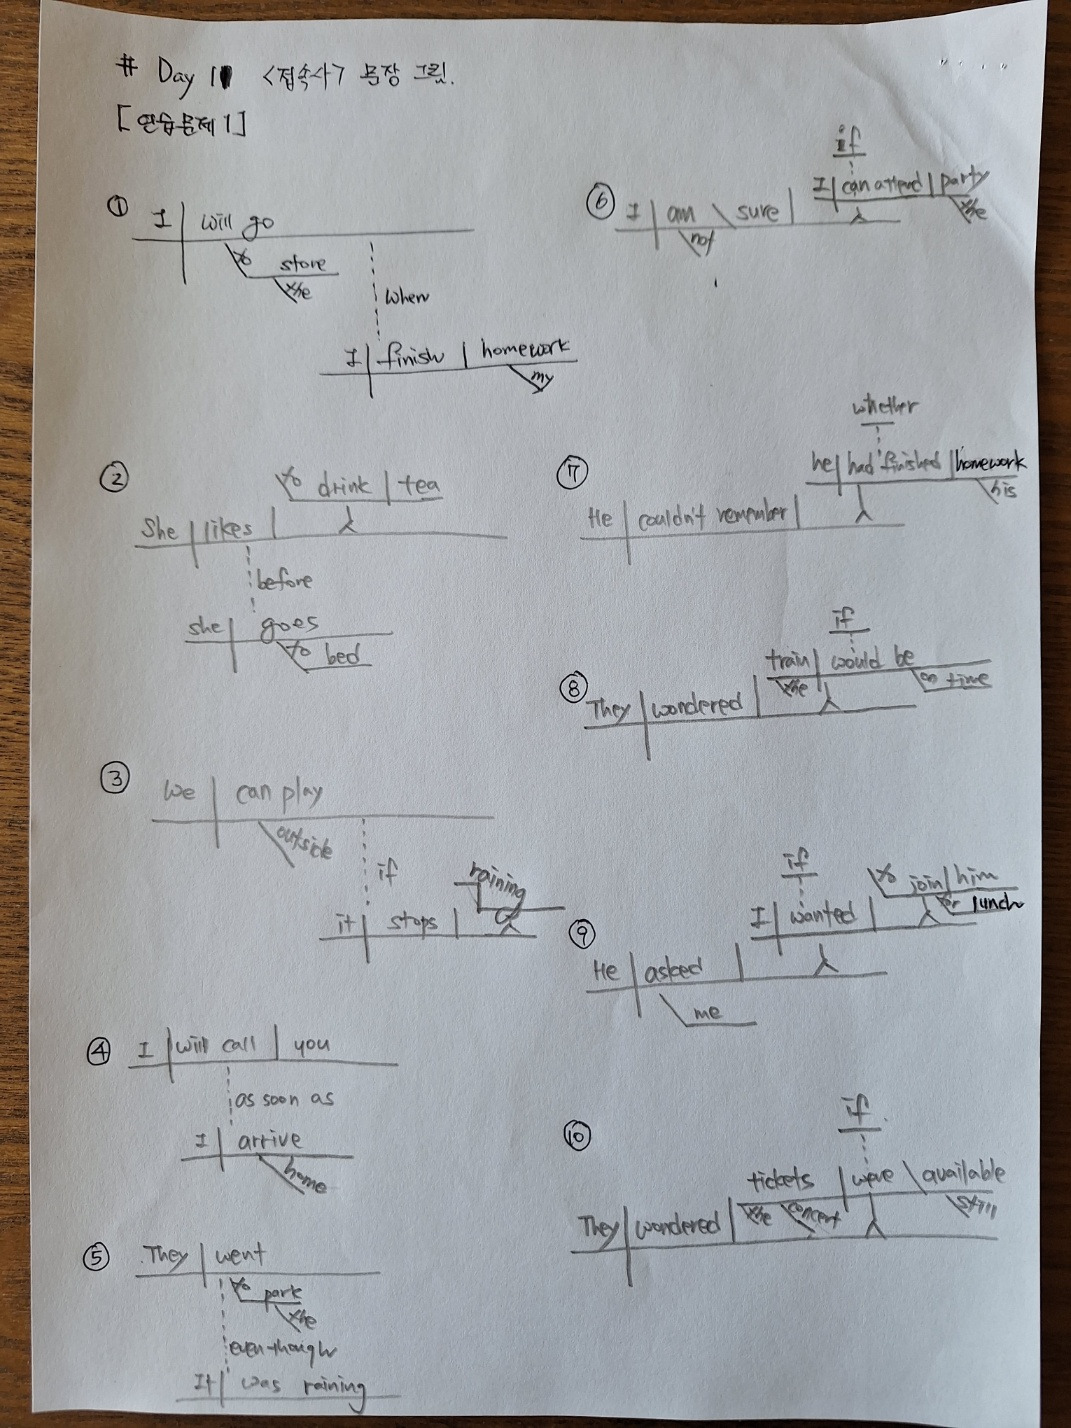 # Day 11 <접속사> 문장 그림.
[연습문제 1]
① I will go
to store
the
when
I finish homework
my
② to drink tea
She likes
before
she goes
to bed
③ We can play
outside
if
raining
it stops
④ I will call you
as soon as
I arrive
home
⑤ They went
to park
the
even though
It was raining
⑥ if
I can attend party
the
I am sure
not
⑦ whether
he had finished homework
his
He couldn't remember
⑧ if
train would be
the on time
They wondered
⑨ if
to join him
for lunch
I wanted
He asked
me
⑩ if
tickets were available
the concert still
They wondered